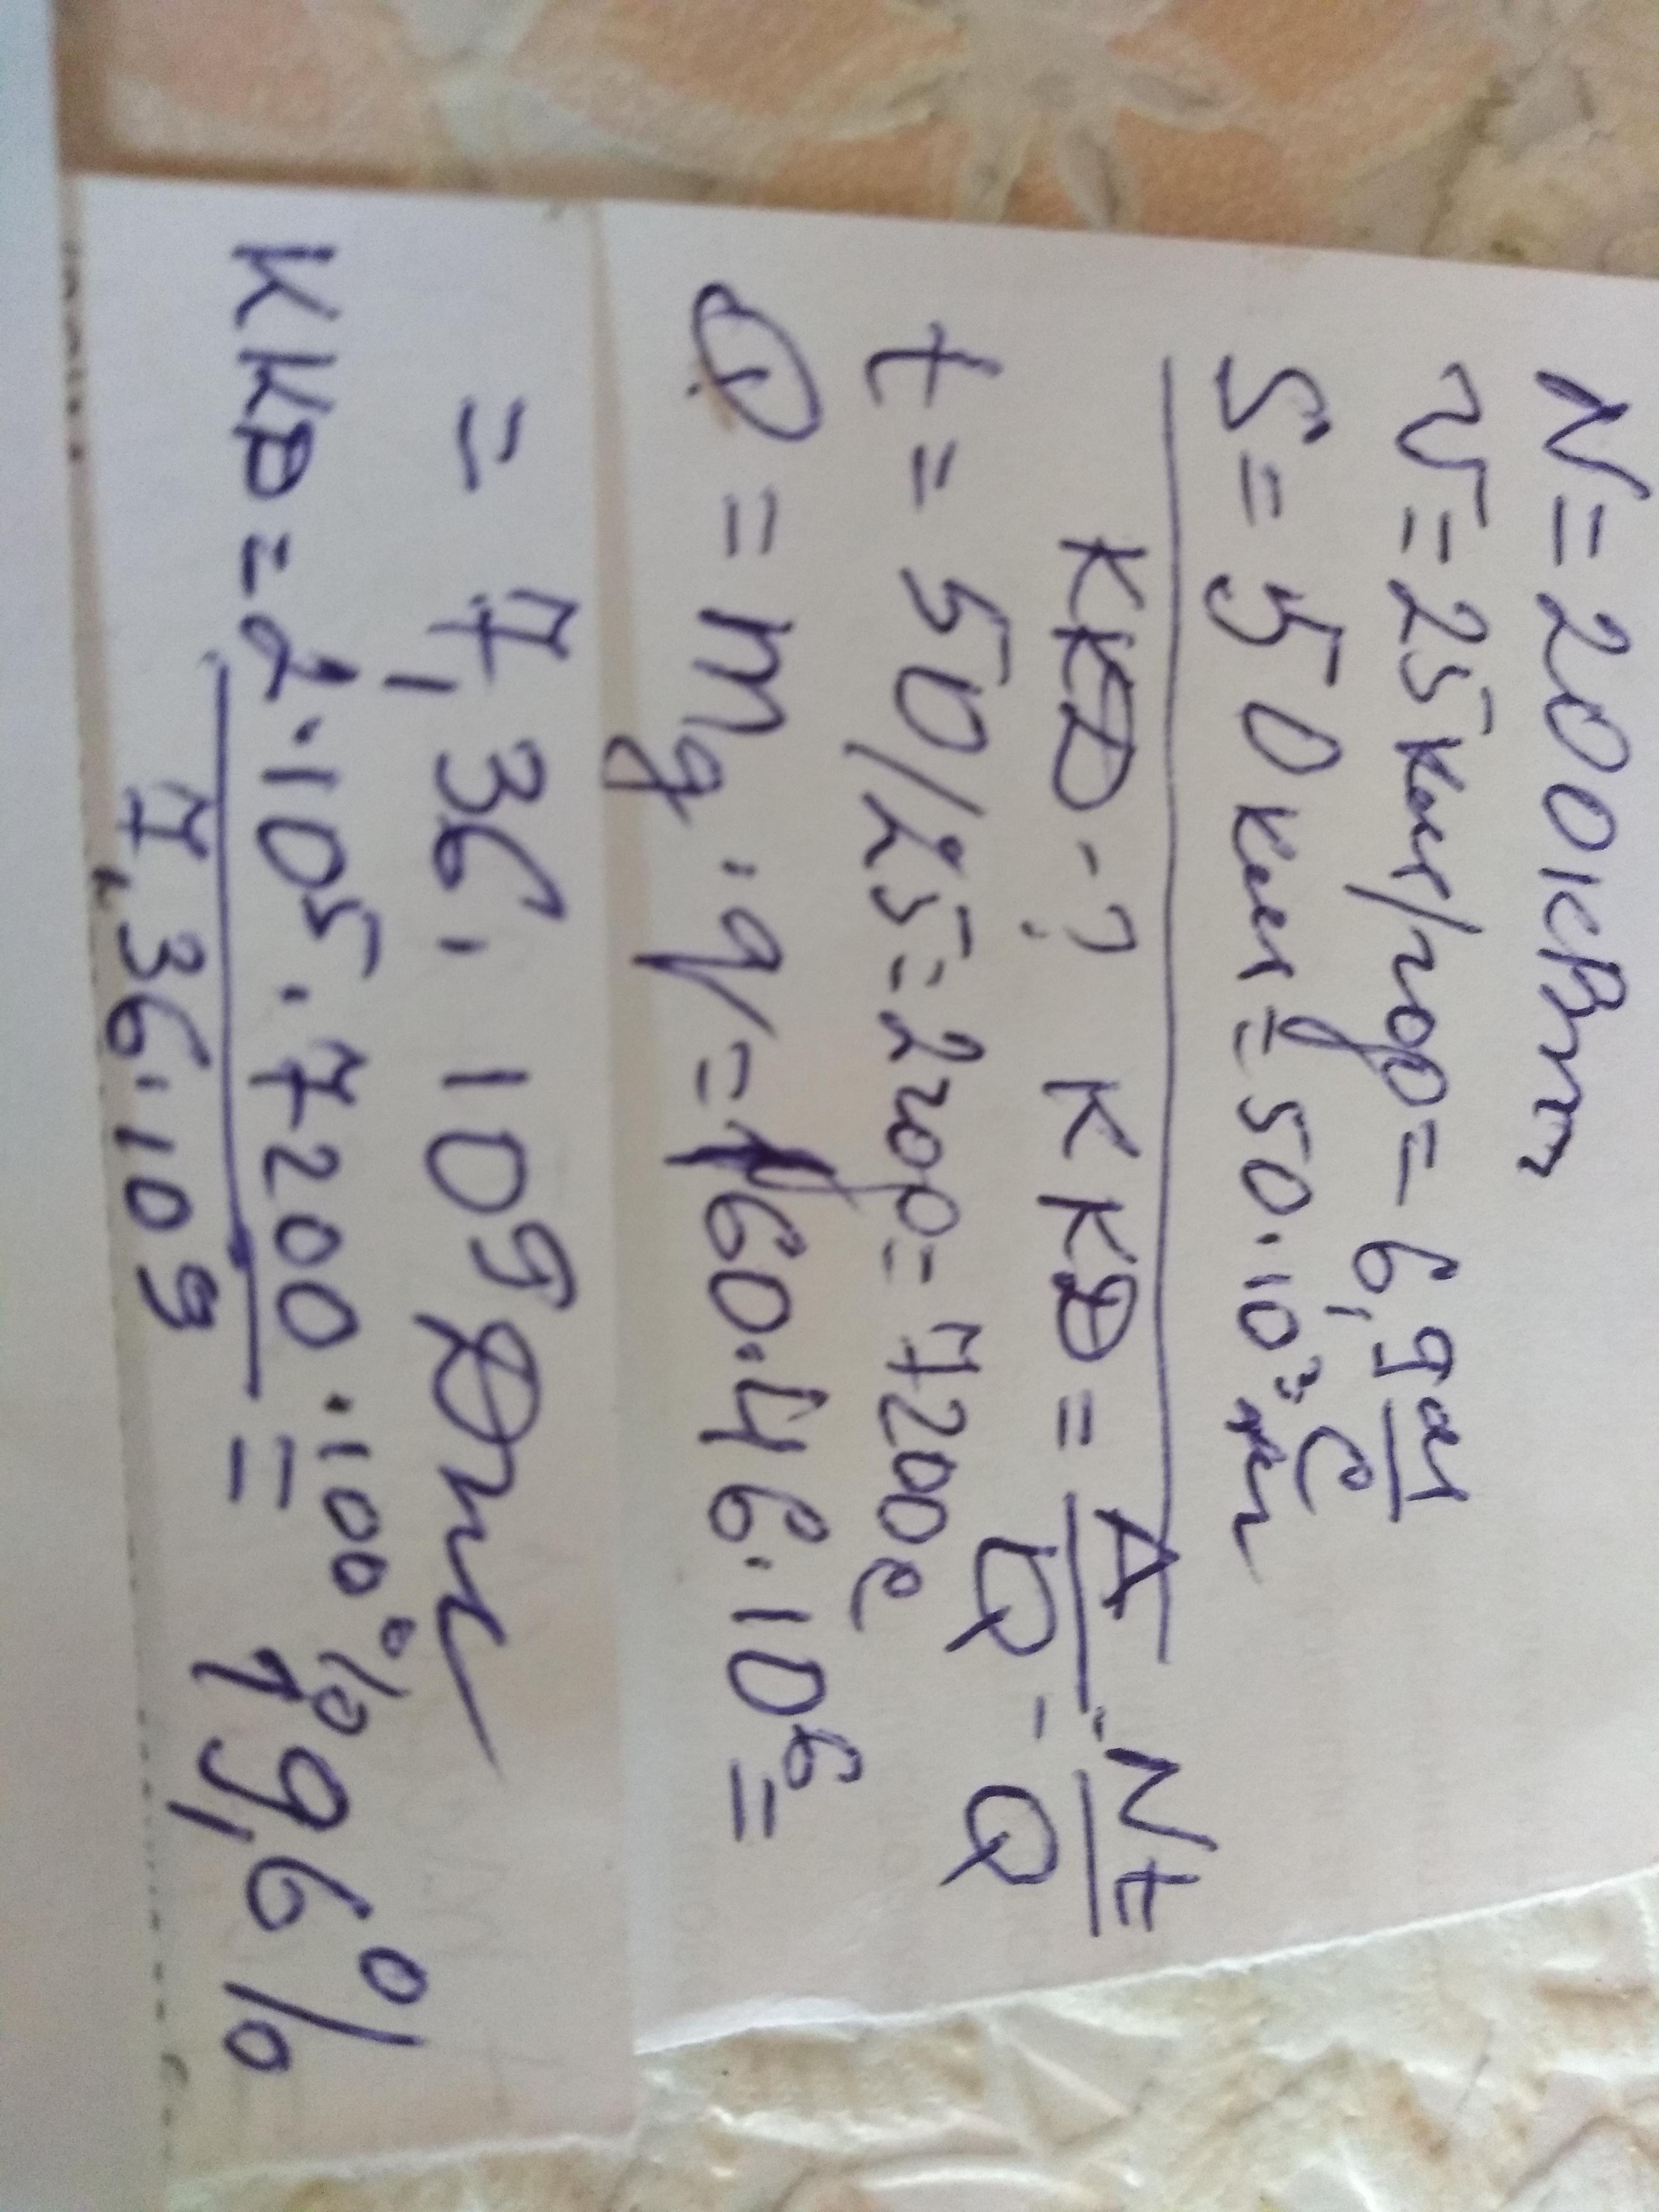 N = 200 кВт
v = 25 км/год = 6,9 м/с
S = 50 км = 50·10³ м
ККД - ? ККД = A/Q = Nt/Q
t = 50/25 = 2 год = 7200 с
Q = m_g · q = 160·46·10⁶ =
= 7,36·10⁹ Дж
ККД = 2·10⁵·7200·100% / 7,36·10⁹ = 19,6%